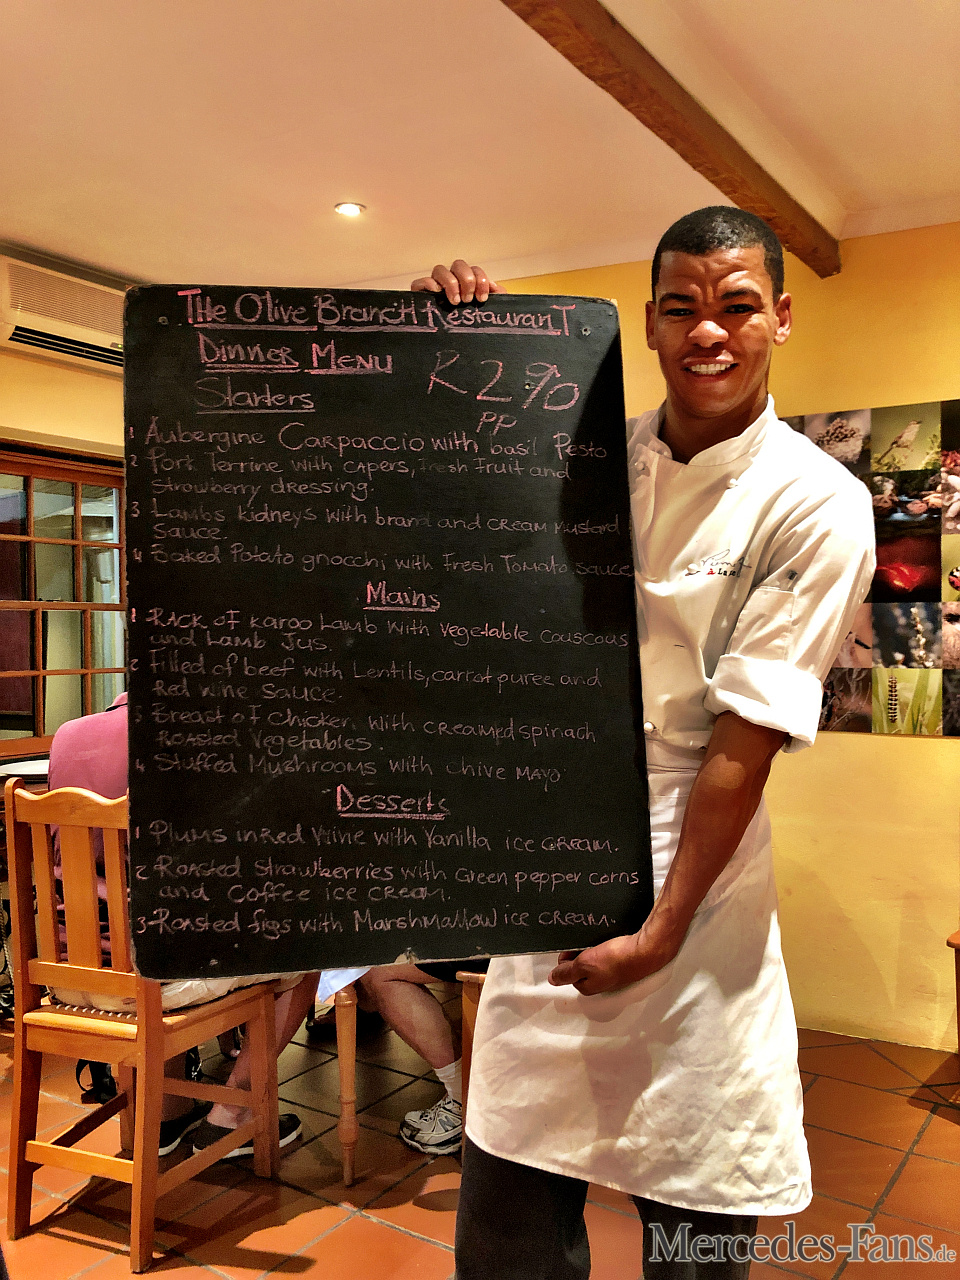 The Olive Branch Restaurant
Dinner Menu
R290
PP
Starters
1 Aubergine Carpaccio with basil Pesto
2 Pork Terrine with capers, fresh Fruit and
strawberry dressing.
3 Lambs kidneys with brand and cream Mustard
Sauce.
4 Baked Potato gnocchi with Fresh Tomato sauce
Mains
1 Rack of Karoo Lamb with vegetable couscous
and Lamb Jus.
2 Filled of beef with Lentils, carrot puree and
Red wine sauce.
3 Breast of Chicken with creamed spinach
Roasted Vegetables.
4 Stuffed Mushrooms with chive Mayo
Desserts
1 Plums in Red Wine with Vanilla ice cream.
2 Roasted Strawberries with Green pepper corns
and Coffee ice cream.
3 Roasted figs with Marshmallow ice cream.
Mercedes-Fans.de